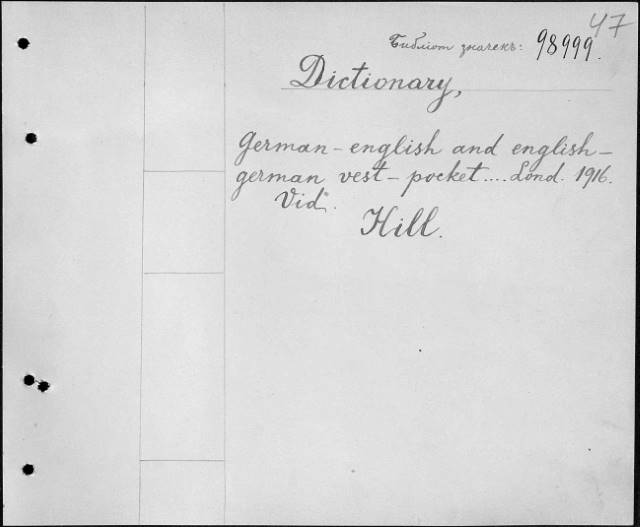 47
Библіот значекъ: 98999.
Dictionary,
German - english and english -
german vest - pocket.... Lond. 1916.
Vid.
Hill.